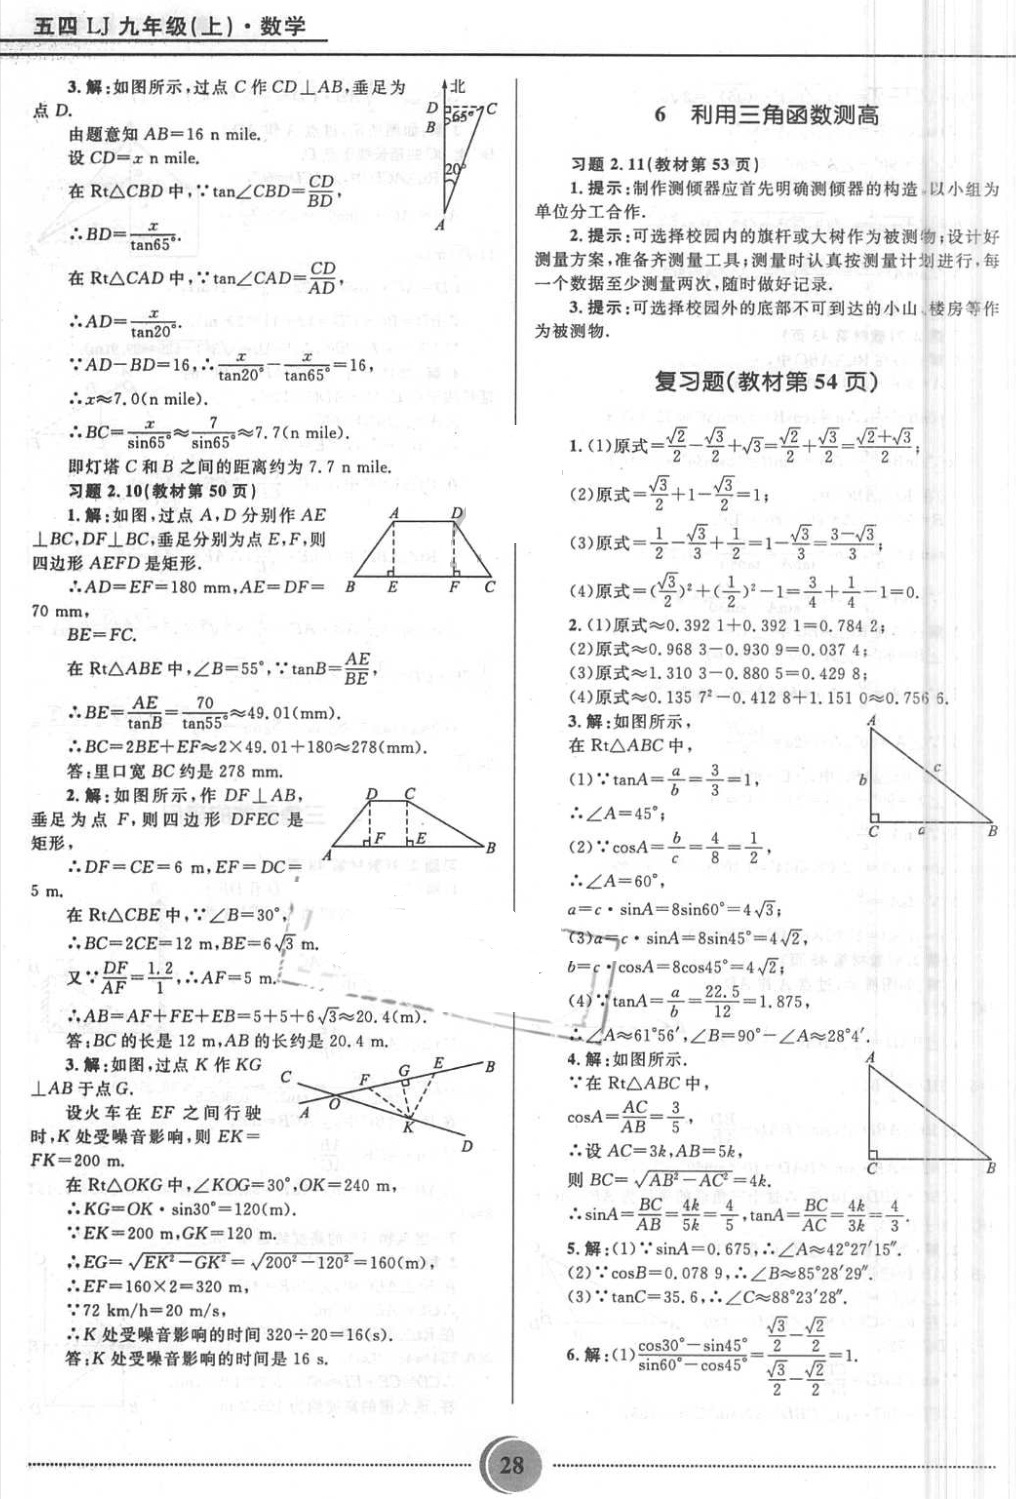 五四 LJ 九年级(上)·数学
3.解:如图所示,过点 C 作 CD⊥AB,垂足为
点 D.
由题意知 AB=16 n mile.
设 CD=x n mile.
在 Rt△CBD 中,∵tan∠CBD=CD/BD,
∴BD=x/tan65°.
在 Rt△CAD 中,∵tan∠CAD=CD/AD,
∴AD=x/tan20°.
∵AD−BD=16,∴x/tan20°−x/tan65°=16,
∴x≈7.0(n mile).
∴BC=x/sin65°≈7/sin65°≈7.7(n mile).
即灯塔 C 和 B 之间的距离约为 7.7 n mile.
北
D
C
B
65°
20°
A
习题 2.10(教材第 50 页)
1.解:如图,过点 A,D 分别作 AE
⊥BC,DF⊥BC,垂足分别为点 E,F,则
四边形 AEFD 是矩形.
∴AD=EF=180 mm,AE=DF=
70 mm,
BE=FC.
在 Rt△ABE 中,∠B=55°,∵tanB=AE/BE,
∴BE=AE/tanB=70/tan55°≈49.01(mm).
∴BC=2BE+EF≈2×49.01+180≈278(mm).
答:里口宽 BC 约是 278 mm.
A D
B E F C
2.解:如图所示,作 DF⊥AB,
垂足为点 F,则四边形 DFEC 是
矩形,
∴DF=CE=6 m,EF=DC=
5 m.
在 Rt△CBE 中,∵∠B=30°,
∴BC=2CE=12 m,BE=6√3 m.
又∵DF/AF=1.2/1,∴AF=5 m.
∴AB=AF+FE+EB=5+5+6√3≈20.4(m).
答:BC 的长是 12 m,AB 的长约是 20.4 m.
D C
F E
A B
3.解:如图,过点 K 作 KG
⊥AB 于点 G.
设火车在 EF 之间行驶
时,K 处受噪音影响,则 EK=
FK=200 m.
在 Rt△OKG 中,∠KOG=30°,OK=240 m,
∴KG=OK·sin30°=120(m).
∵EK=200 m,GK=120 m.
∴EG=√(EK²−GK²)=√(200²−120²)=160(m),
∴EF=160×2=320 m,
∵72 km/h=20 m/s,
∴K 处受噪音影响的时间 320÷20=16(s).
答:K 处受噪音影响的时间是 16 s.
C F G E B
A O K D
6 利用三角函数测高
习题 2.11(教材第 53 页)
1.提示:制作测倾器应首先明确测倾器的构造,以小组为
单位分工合作.
2.提示:可选择校园内的旗杆或大树作为被测物;设计好
测量方案,准备齐测量工具;测量时认真按测量计划进行,每
一个数据至少测量两次,随时做好记录.
3.提示:可选择校园外的底部不可到达的小山、楼房等作
为被测物.
复习题(教材第 54 页)
1.(1)原式=√2/2−√3/2+√3=√2/2+√3/2=(√2+√3)/2;
(2)原式=√3/2+1−√3/2=1;
(3)原式=1/2−√3/3+1/2=1−√3/3=(3−√3)/3;
(4)原式=(√3/2)²+(1/2)²−1=3/4+1/4−1=0.
2.(1)原式≈0.392 1+0.392 1=0.784 2;
(2)原式≈0.968 3−0.930 9=0.037 4;
(3)原式≈1.310 3−0.880 5=0.429 8;
(4)原式≈0.135 7²−0.412 8+1.151 0≈0.756 6.
3.解:如图所示,
在 Rt△ABC 中,
(1)∵tanA=a/b=3/3=1,
∴∠A=45°;
(2)∵cosA=b/c=4/8=1/2,
∴∠A=60°,
a=c·sinA=8sin60°=4√3;
(3)a=c·sinA=8sin45°=4√2,
b=c·cosA=8cos45°=4√2;
(4)∵tanA=a/b=22.5/12=1.875,
∴∠A≈61°56′,∠B=90°−∠A≈28°4′.
A
b c
C a B
4.解:如图所示.
∵在 Rt△ABC 中,
cosA=AC/AB=3/5,
∴设 AC=3k,AB=5k,
则 BC=√(AB²−AC²)=4k.
∴sinA=BC/AB=4k/5k=4/5,tanA=BC/AC=4k/3k=4/3.
A
C B
5.解:(1)∵sinA=0.675,∴∠A≈42°27′15″.
(2)∵cosB=0.078 9,∴∠B≈85°28′29″.
(3)∵tanC=35.6,∴∠C≈88°23′28″.
6.解:(1)(cos30°−sin45°)/(sin60°−cos45°)=(√3/2−√2/2)/(√3/2−√2/2)=1.
28